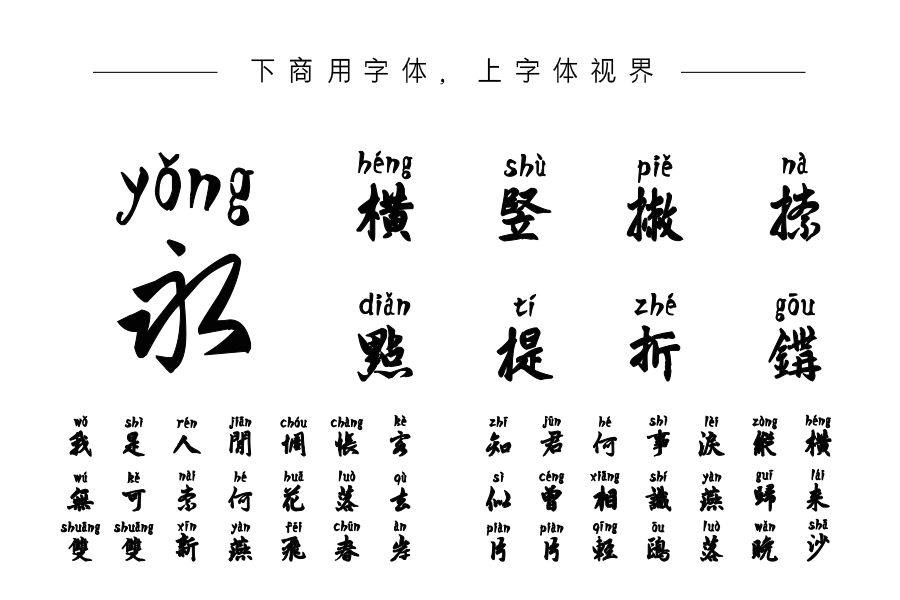 下商用字体，上字体视界
yǒng
永
héng shù piě nà
橫 竪 撇 捺
diǎn tí zhé gōu
點 提 折
wǒ shì rén jiān chóu chàng kè zhī jūn hé shì lèi zòng héng
我 是 人 間 惆 悵 客 知 君 何 事 淚 縱 橫
wú kě nài hé huā luò qù sì céng xiāng shí yàn guī lái
無 可 奈 何 花 落 去 似 曾 相 識 燕 歸 來
shuāng shuāng xīn yàn fēi chūn àn piàn piàn qīng ōu luò wǎn shā
雙 雙 新 燕 飛 春 岸 片 片 輕 鷗 落 晚 沙